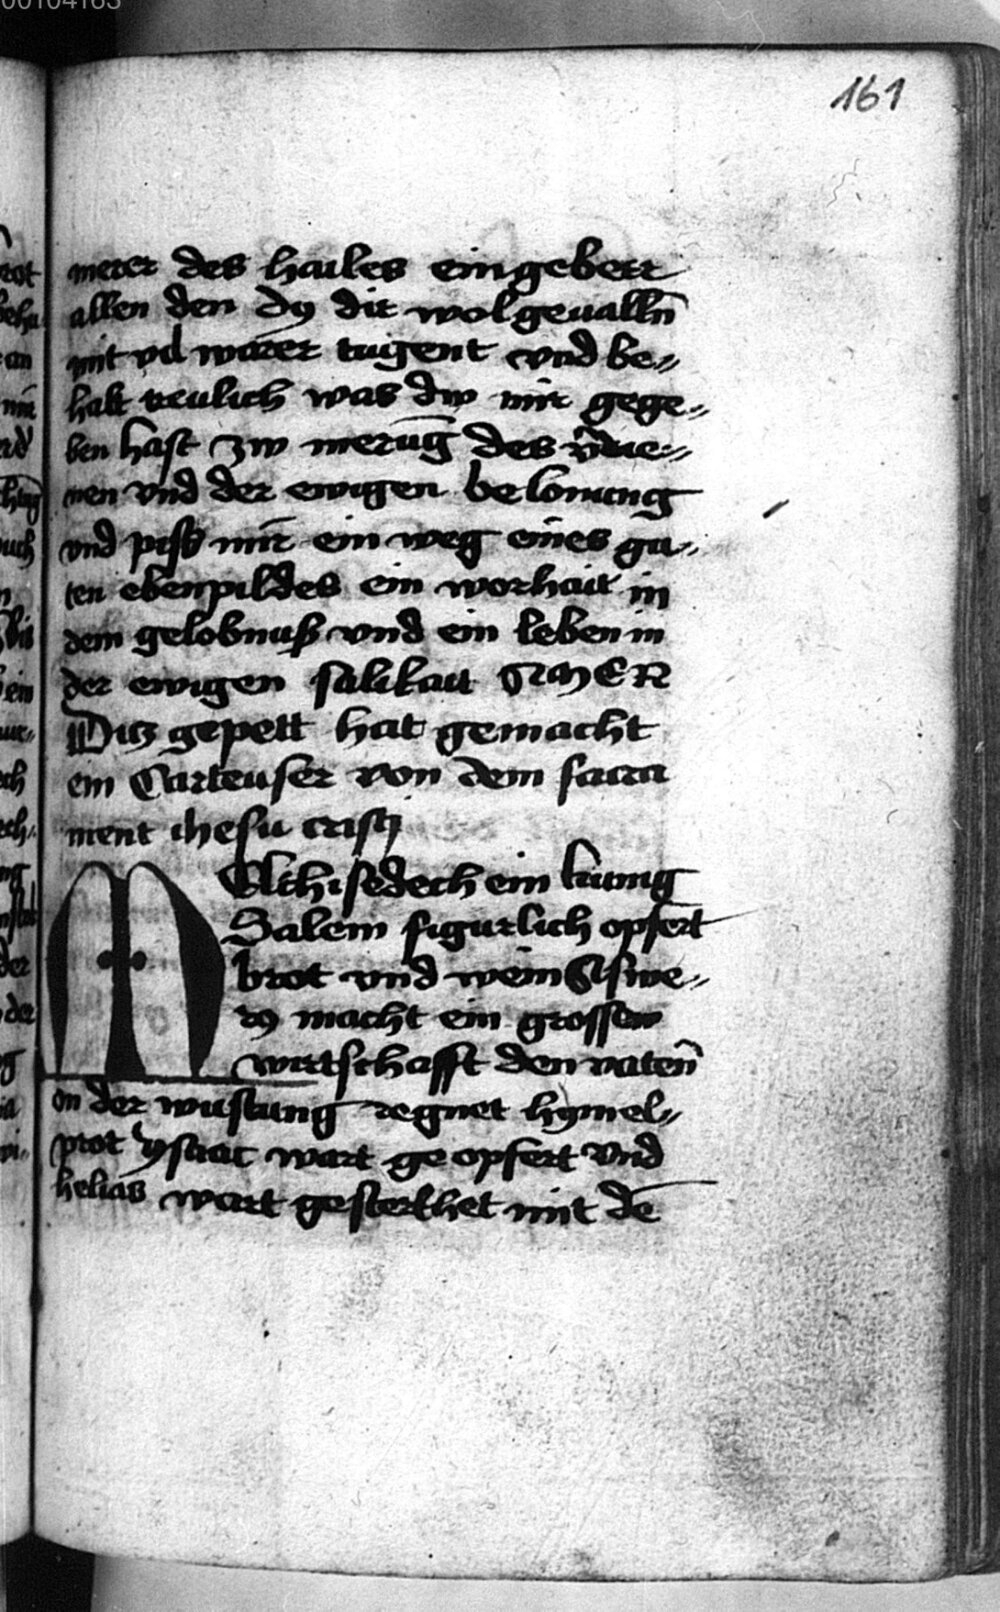 00104163
161
merer des hailes eingeberr
allen den dy dir wolgeuallñ
mit vil warer tugent vnd be⸗
halt treulich was dw mir gege⸗
ben hast zw merūg des v̄die⸗
nen vnd der ewigen belonung
vnd piss mir ein weg eines gu⸗
ten ebenpildes ein worhait in
dem gelobnuß vnd ein leben in
der ewigen salikait AMER
Ditz gepett hat gemacht
ein Carteuser von dem sacra
ment ihesu cristj
MElchisedech ein kunig
Salem figurlich opfert
brot vnd wein Asswe⸗
ry macht ein grossew
wirtschafft den vateñ
in der wustung regnet hymel⸗
prot ysaac wart geopfert vnd
helias wart gesterkhet mit dē